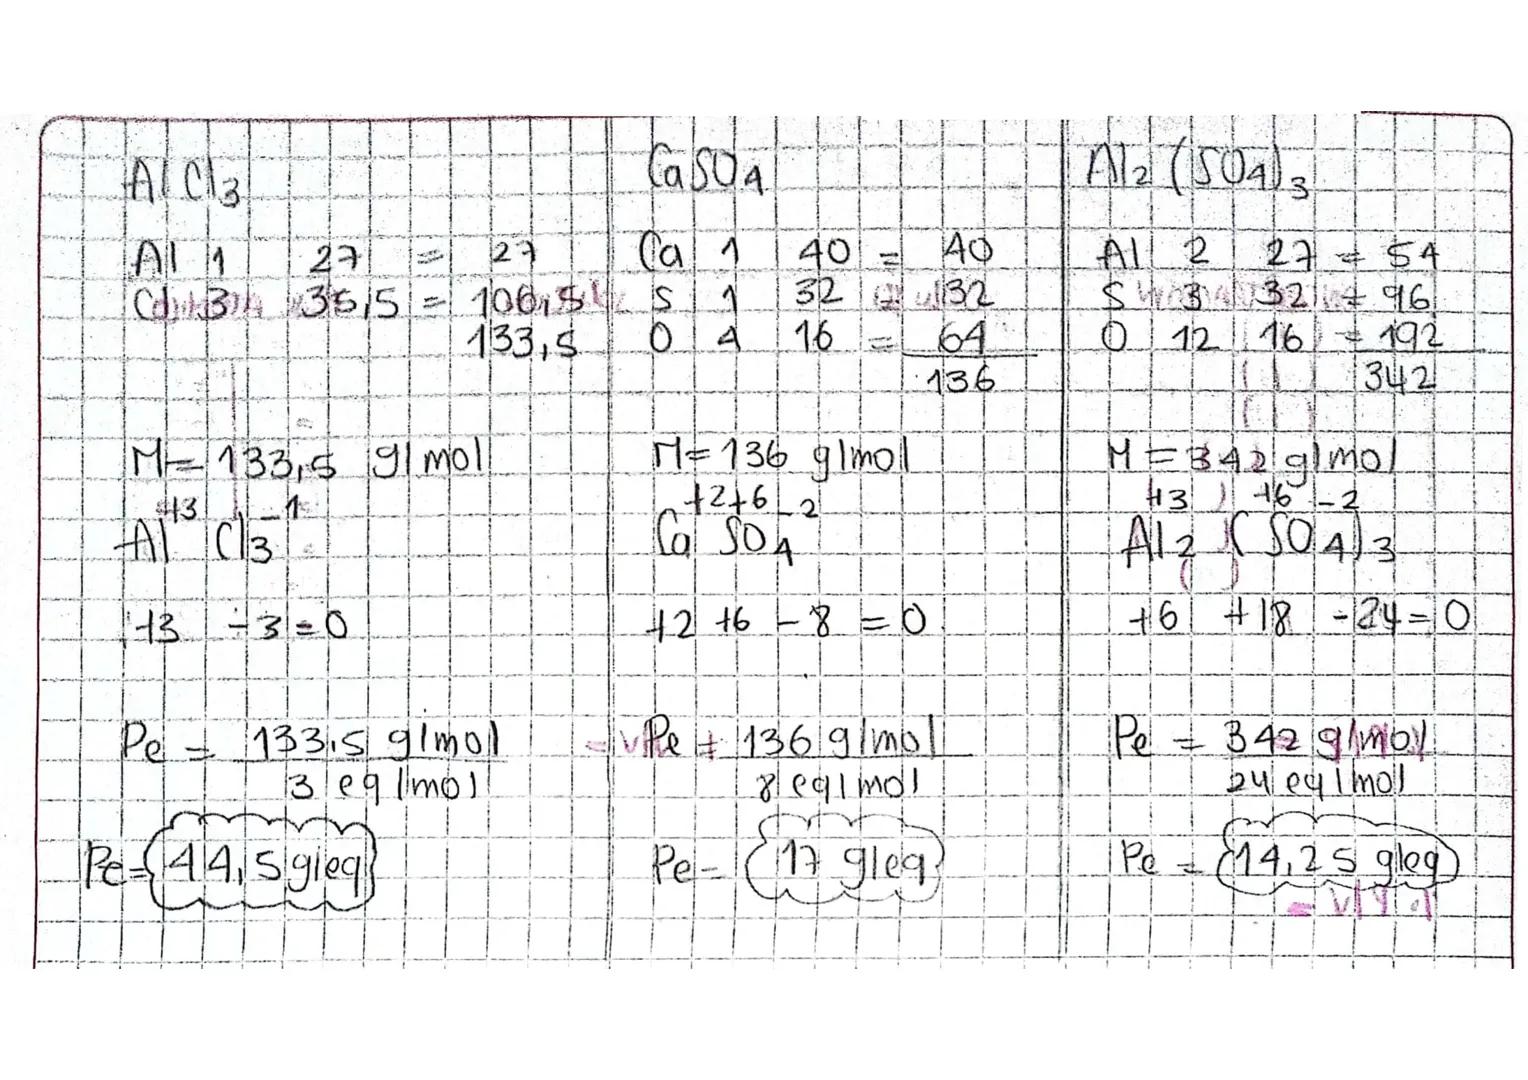 AlCl3
Al 1 27 = 27
Cl 3 35,5 = 106,5
133,5
M = 133,5 g/mol
+3 -1
Al Cl3
+3 -3 = 0
Pe = 133,5 g/mol
3 eq/mol
Pe = 44,5 g/eq
CaSO4
Ca 1 40 = 40
S 1 32 = 32
O 4 16 = 64
136
M = 136 g/mol
+2 +6 -2
Ca SO4
+2 +6 -8 = 0
Pe = 136 g/mol
8 eq/mol
Pe = 17 g/eq
Al2(SO4)3
Al 2 27 = 54
S 3 32 = 96
O 12 16 = 192
342
M = 342 g/mol
+3 +6 -2
Al2(SO4)3
+6 +18 -24 = 0
Pe = 342 g/mol
24 eq/mol
Pe = 14,25 g/eq